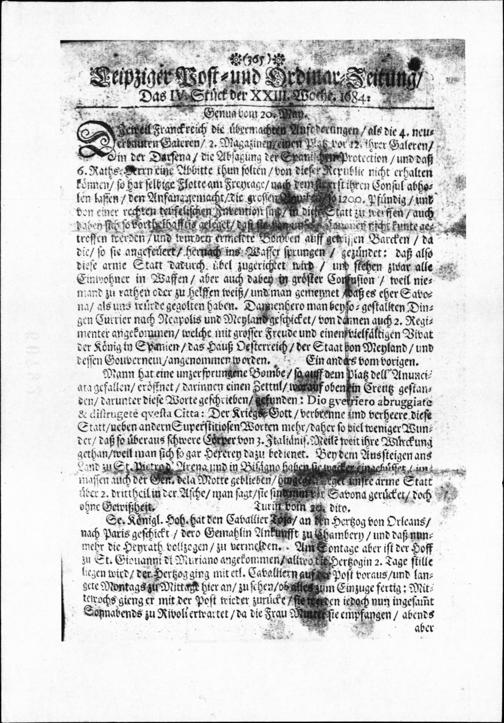 (365)
Leipziger Post- und Ordinar-Zeitung/
Das IV. Stück der XXIII. Woche. 1684.
Genua vom 20. May.
DIeweil Franckreich die übermachten Anforderungen/ als die 4. neu-
erbauten Galeren/ 2. Magazinen/ einen Platz vor 12. ihrer Galeren/
in der Darsena/ die Absagung der Spanischen Protection/ und daß
6. Raths-Herrn eine Abbitte thun solten/ von dieser Republic nicht erhalten
können/ so hat selbige Flotte am Freytage/ nach dem sie erst ihren Consul abho-
len lassen/ den Anfang gemacht/ die grossen 1200. Pfündig/ und
von einer rechten teufelischen Invention sind/ in diese Statt zu werffen/ auch
haben sich so vortheilhafftig geleget/ daß sie nicht kunte ge-
troffen werden/ und wurden ermeldte Bomben auff gewissen Barcken/ da
die/ so sie angefeuert/ hernach ins Wasser sprungen/ gezündet: daß also
diese arme Statt dadurch übel zugerichtet wird/ und stehen zwar alle
Einwohner in Waffen/ aber auch dabey in gröster Confusion/ weil nie-
mand zu rathen oder zu helffen weiß/ und man gemeynet/ daß es eher Savo-
na/ als uns würde gegolten haben. Dannenhero man bey so-gestallten Din-
gen Currier nach Neapolis und Meyland geschicket/ von dannen auch 2. Regi-
menter angekommen/ welche mit grosser Freude und einen vielfältigen Vivat
der König in Spanien/ das Hauß Oesterreich/ der Stat von Meyland/ und
dessen Gouverneur/ angenommen worden. Ein anders vom vorigen.
Mann hat eine unzersprungene Bombe/ so auff dem Platz dell' Anunci-
ata gefallen/ eröffnet/ darinnen einen Zettul/ worauf oben ein Creutz gestan-
den/ darunter diese Worte geschrieben/ gefunden: Dio gverriero abruggiate
& distrugete qvesta Citta: Der Kriegs-Gott/ verbrenne und verheere diese
Statt/ neben andern Superstitiosen Worten mehr/ daher so viel weniger Wun-
der/ daß so überaus schwere Cörper von 3. Italiänis. Meile weit ihre Würckung
gethan/ weil man sich so gar Hexerey dazu bedienet. Bey dem Aussteigen ans
Land zu St. Pietro d' Arena und in Bisagno haben sie wacker eingebüsset/ im-
massen auch der Gen. dela Motte geblieben/ hingegen lieget unsre arme Statt
über 2. drittheil in der Asche/ man sagt/ sie sind nun vor Savona gerücket/ doch
ohne Gewißheit. Turin vom 20. dito.
Se. Königl. Hoh. hat den Cavallier Toja/ an den Hertzog von Orleans/
nach Paris geschickt/ dero Gemahlin Ankunfft zu Chambery/ und daß nun-
mehr die Heyrath vollzogen/ zu vermelden. Am Sontage aber ist der Hoff
zu St. Giovanni di Muriano angekommen/ allwo die Hertzogin 2. Tage stille
liegen wird/ der Hertzog ging mit etl. Cavalliern auf der Post voraus/ und lan-
gete Montags zu Mittag hier an/ zu sehen/ ob alles zum Einzuge fertig: Mit-
tewochs gieng er mit der Post wieder zurücke/ sie werden iedoch nun ingesamt
Sonnabends zu Rivoli erwartet/ da die Frau Mutter sie empfangen/ abends
aber